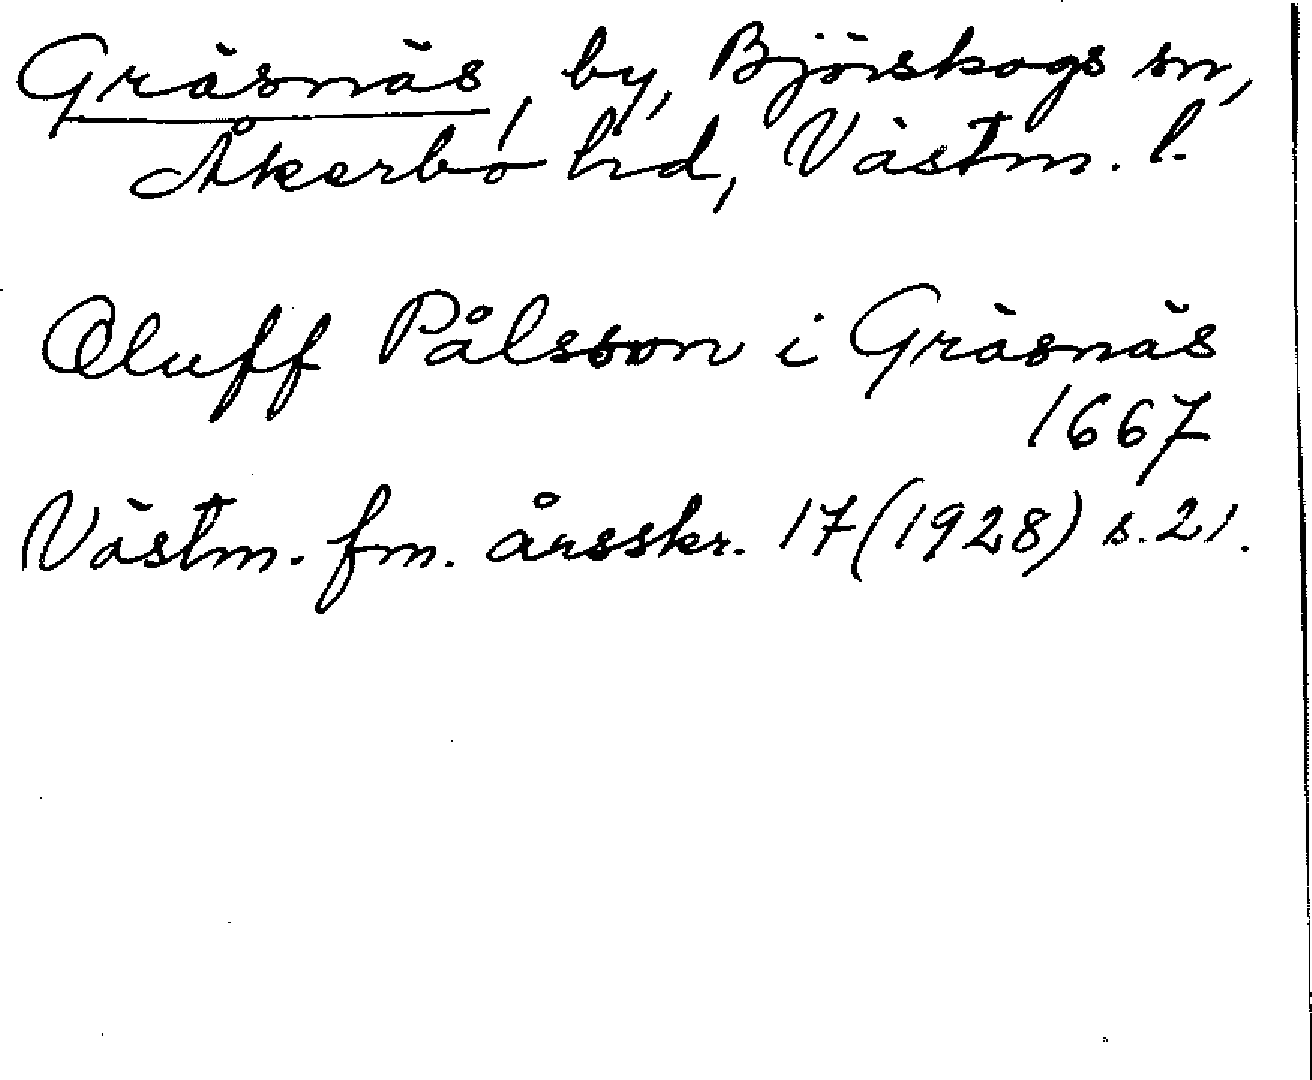 Gräsnäs, by, Björskogs sn,
Åkerbo hd, Västm. l.
Oluff Pålsson i Gräsnäs
1667
Västm. fm. årsskr. 17 (1928) s. 21.